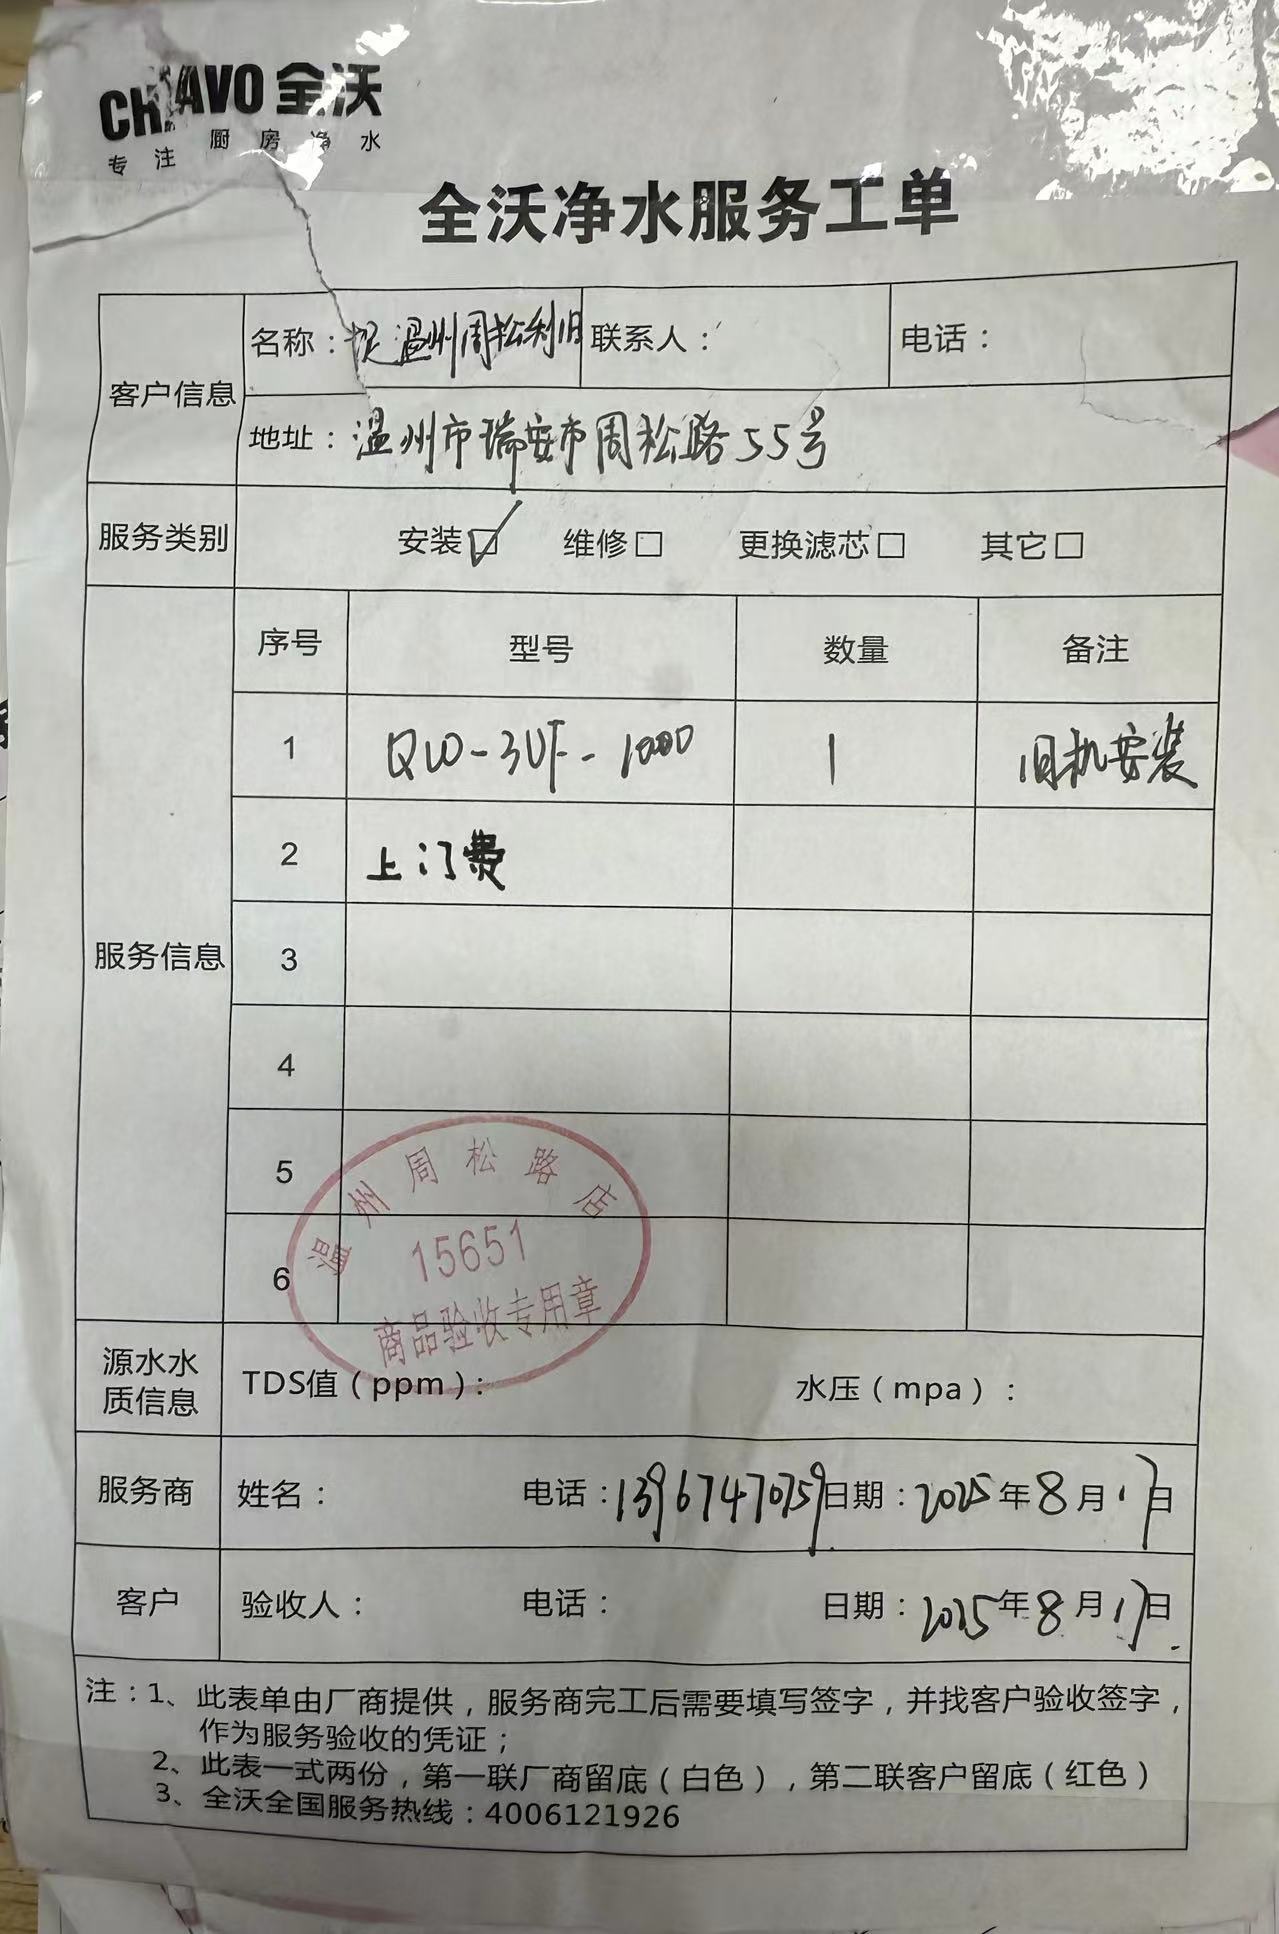 CHAVO 全沃
专注厨房净水
全沃净水服务工单
客户信息
名称：温州周松利旧
联系人：
电话：
地址：温州市瑞安市周松路55号
服务类别
安装☑ 维修□ 更换滤芯□ 其它□
服务信息
序号 型号 数量 备注
1 QW-3UF-1000 1 旧机安装
2 上门费
3
4
5
6
温州周松路店
15651
商品验收专用章
源水水质信息
TDS值（ppm）： 水压（mpa）：
服务商 姓名： 电话：13967470759 日期：2025年8月17日
客户 验收人： 电话： 日期：2025年8月17日
注：1、此表单由厂商提供，服务商完工后需要填写签字，并找客户验收签字，
作为服务验收的凭证；
2、此表一式两份，第一联厂商留底（白色），第二联客户留底（红色）
3、全沃全国服务热线：4006121926